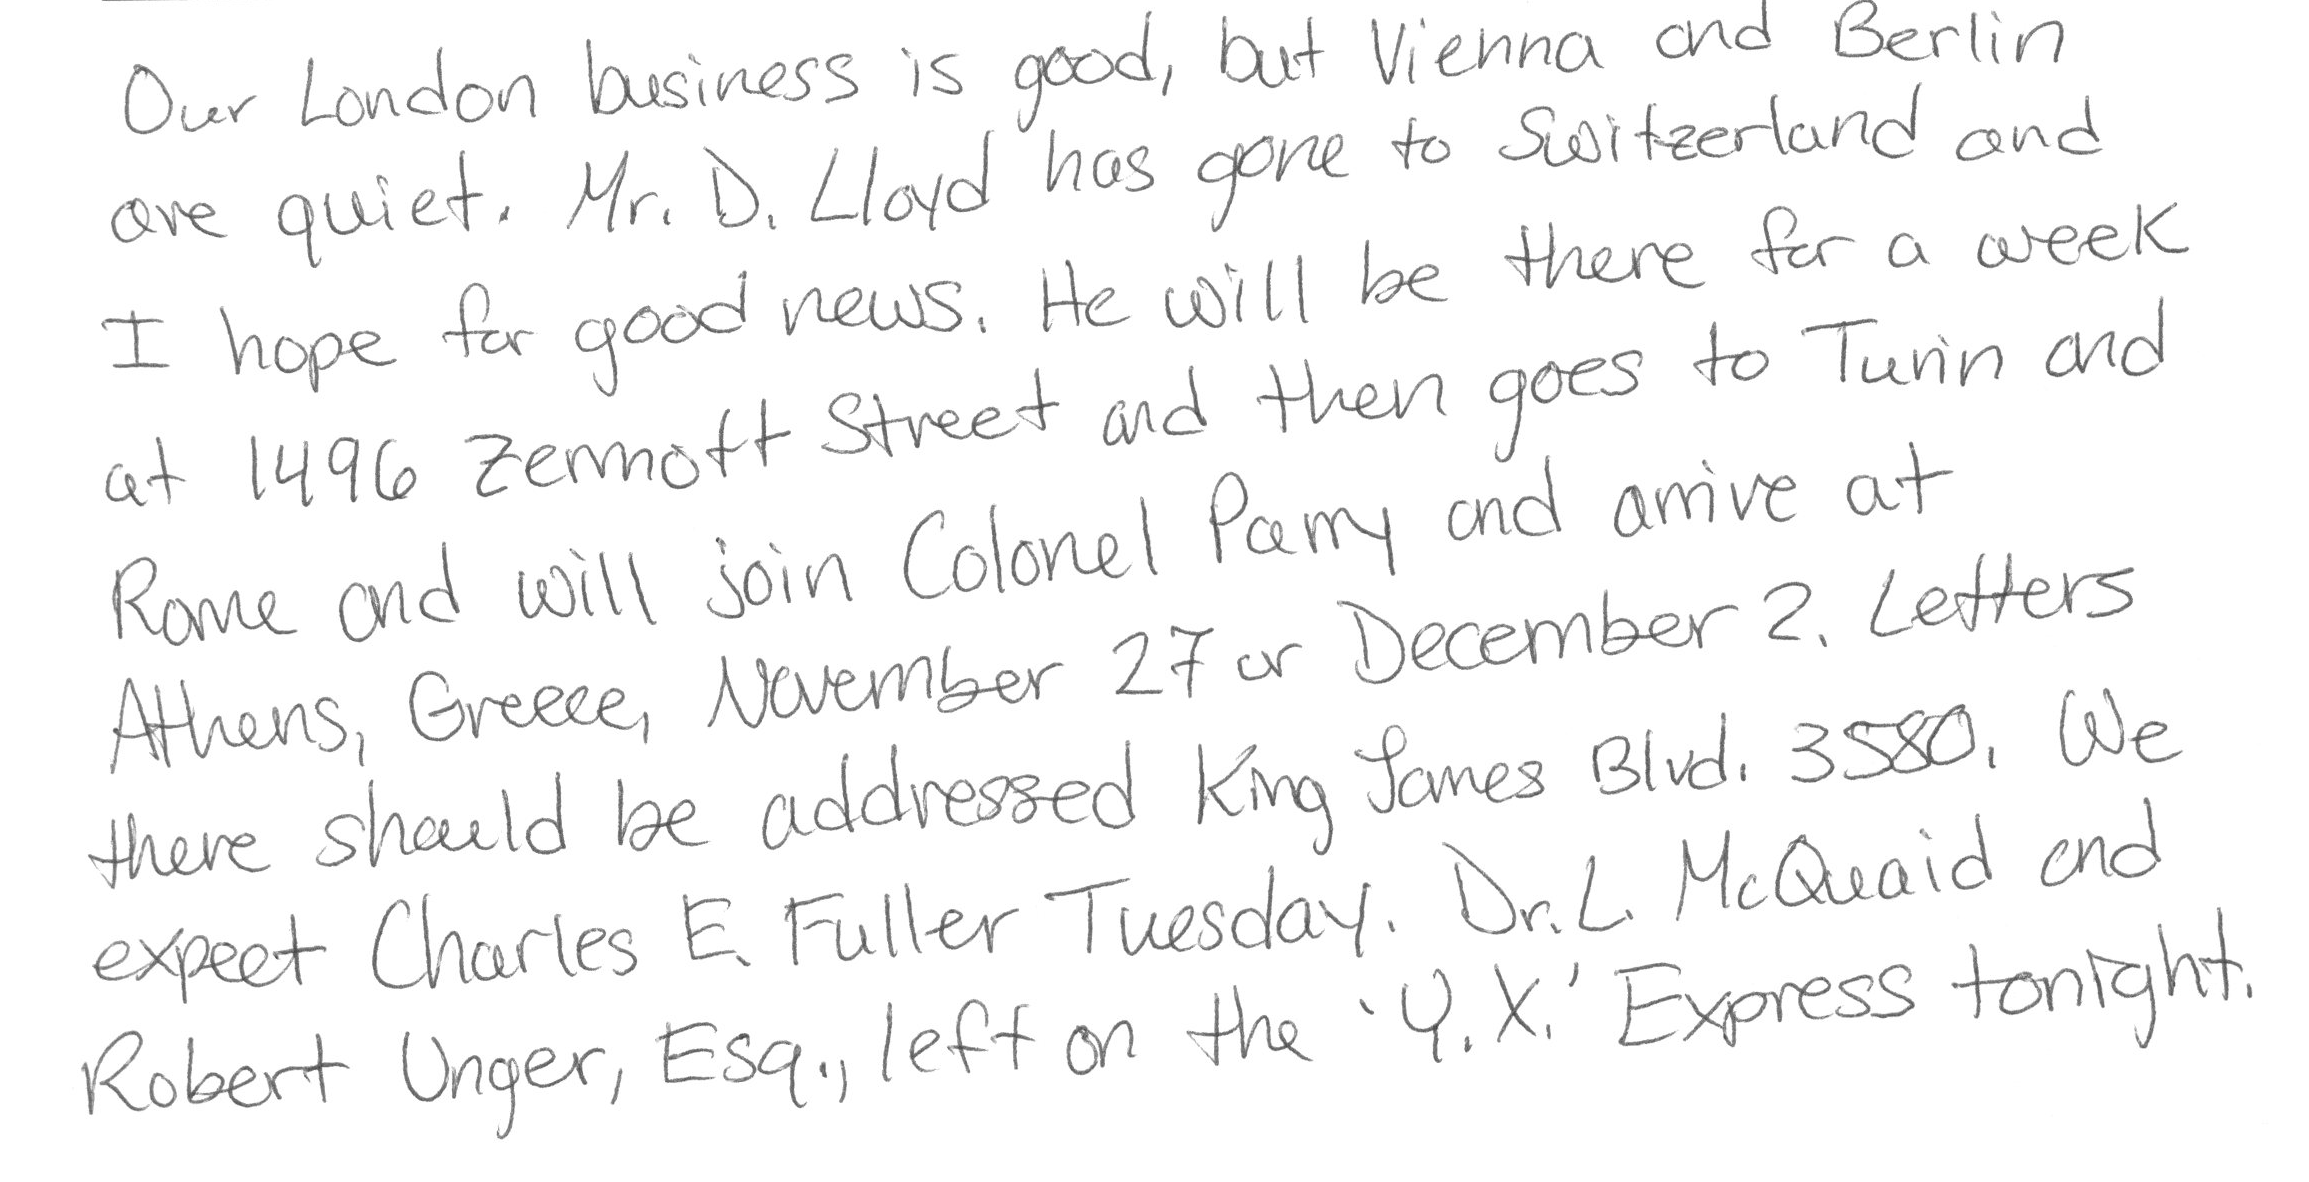 Our London business is good, but Vienna and Berlin
are quiet. Mr. D. Lloyd has gone to Switzerland and
I hope for good news. He will be there for a week
at 1496 Zermott Street and then goes to Turin and
Rome and will join Colonel Parry and arrive at
Athens, Greece, November 27 or December 2. Letters
there should be addressed King James Blvd. 3580. We
expect Charles E. Fuller Tuesday. Dr. L. McQuaid and
Robert Unger, Esq., left on the 'Y.X.' Express tonight.